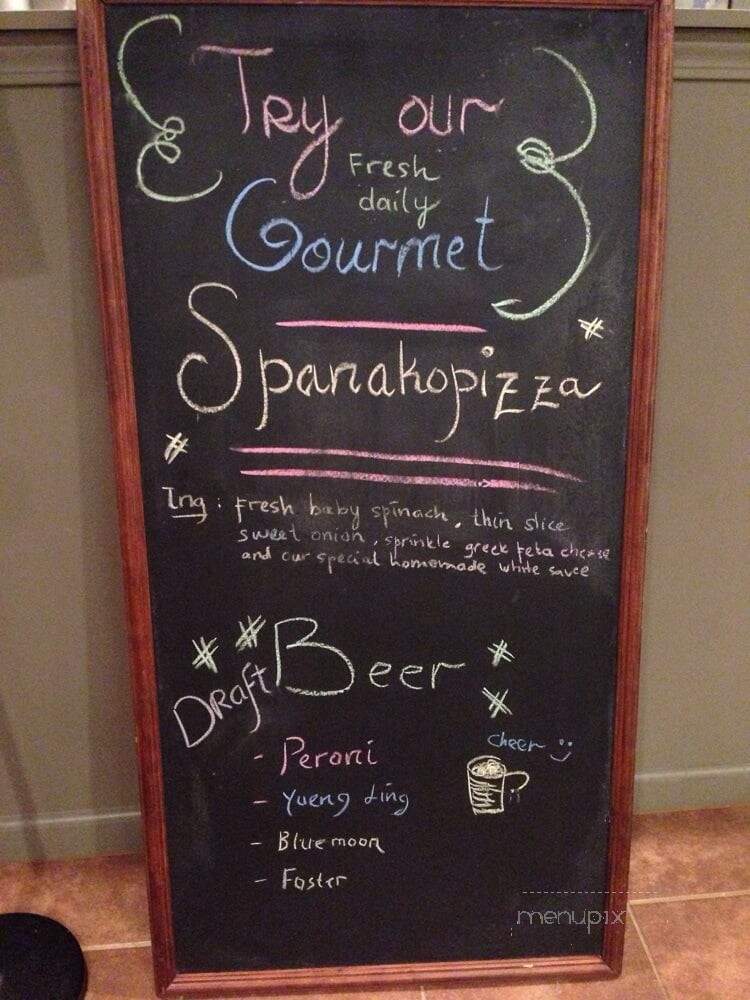 Try our
Fresh
daily
Gourmet
Spanakopizza
Ing: fresh baby spinach, thin slice
sweet onion, sprinkle greek feta cheese
and our special homemade white sauce
Draft Beer
cheer
- Peroni
- Yueng Ling
- Blue moon
- Foster
menupix